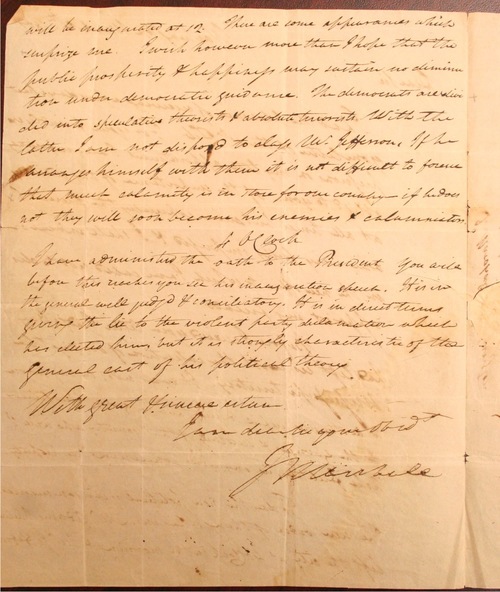 will be inaugurated at 12. There are some appearances which
surprize me. I wish however more than I hope that the
public prosperity & happiness may sustain no diminu
tion under democratic guidance. The democrats are divi
ded into speculative theorists & absolute terrorists. With the
latter I am not disposed to class Mr. Jefferson. If he
arranges himself with them it is not difficult to foresee
that much calamity is in store for our country—if he does
not they will soon become his enemies & calumniators
4 OClock
I have administered the oath to the President. You will
before this reaches you see his inauguration speech. It is in
the general well judgd & conciliatory. It is in direct terms
giving the lie to the violent party declamation which
has elected him, but it is strongly characteristic of the
general cast of his political theory.
With great & sincere esteem
I am dear Sir your Obedt
J Marshall